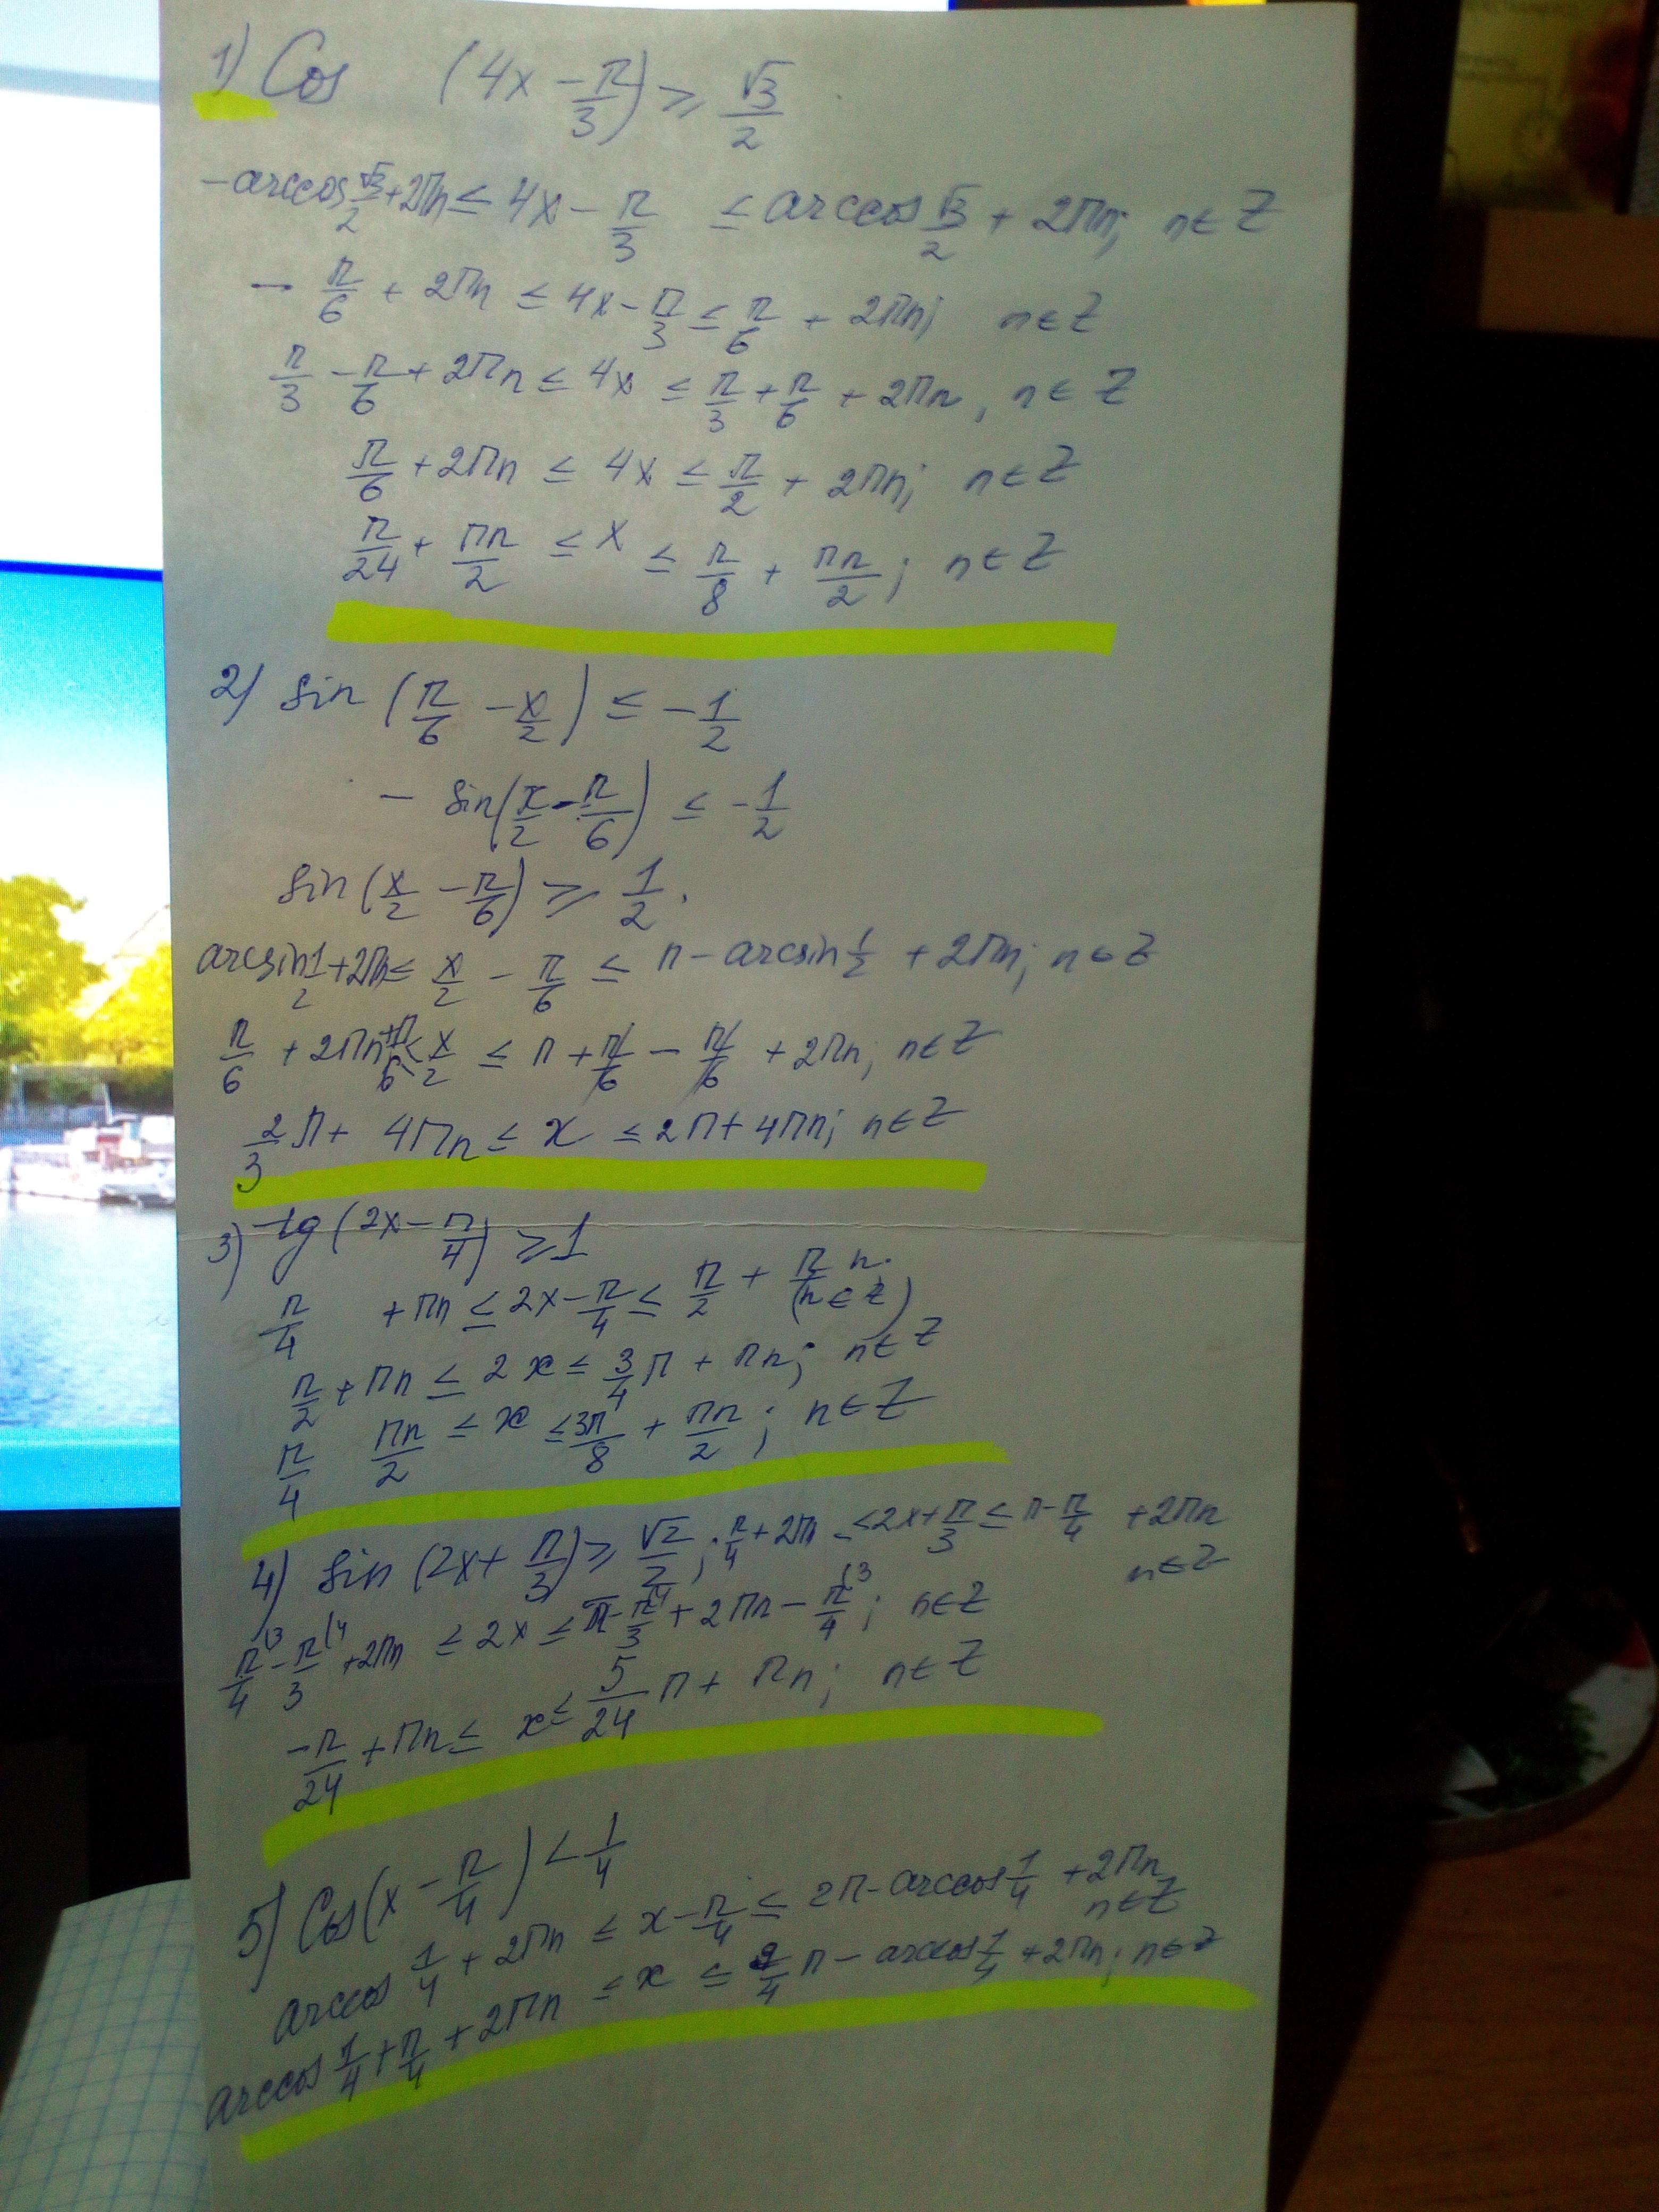 1) Cos (4x - π/3) ≥ √3/2
-arccos √3/2 + 2πn ≤ 4x - π/3 ≤ arccos √3/2 + 2πn; n ∈ Z
- π/6 + 2πn ≤ 4x - π/3 ≤ π/6 + 2πn; n ∈ Z
π/3 - π/6 + 2πn ≤ 4x ≤ π/3 + π/6 + 2πn, n ∈ Z
π/6 + 2πn ≤ 4x ≤ π/2 + 2πn; n ∈ Z
π/24 + πn/2 ≤ x ≤ π/8 + πn/2; n ∈ Z
2) sin (π/6 - x/2) ≤ - 1/2
- sin (x/2 - π/6) ≤ - 1/2
sin (x/2 - π/6) ≥ 1/2.
arcsin 1/2 + 2πn ≤ x/2 - π/6 ≤ π - arcsin 1/2 + 2πn; n ∈ Z
π/6 + 2πn + π/6 ≤ x/2 ≤ π + π/6 - π/6 + 2πn; n ∈ Z
2/3 π + 4πn ≤ x ≤ 2π + 4πn; n ∈ Z
3) tg (2x - π/4) ≥ 1
π/4 + πn ≤ 2x - π/4 ≤ π/2 + πn. (n ∈ Z)
π/2 + πn ≤ 2x ≤ 3/4 π + πn; n ∈ Z
π/4 πn/2 ≤ x ≤ 3π/8 + πn/2; n ∈ Z
4) sin (2x + π/3) ≥ √2/2; π/4 + 2πn ≤ 2x + π/3 ≤ π - π/4 + 2πn n ∈ Z
π/4 - π/3 + 2πn ≤ 2x ≤ π - π/3 + 2πn - π/4; n ∈ Z
-π/24 + πn ≤ x ≤ 5/24 π + πn; n ∈ Z
5) Cos (x - π/4) < 1/4
arccos 1/4 + 2πn ≤ x - π/4 ≤ 2π - arccos 1/4 + 2πn n ∈ Z
arccos 1/4 + π/4 + 2πn ≤ x ≤ 9/4 π - arccos 1/4 + 2πn; n ∈ Z